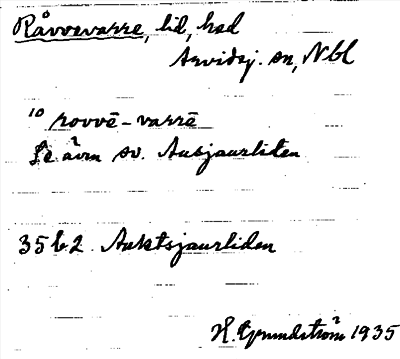 Råvvevarre, lid, hsd
Arvidsj. sn, Nbl
10 rovvē-varrē
Se även sv. Ausjaurliden
35 b 2. Auktsjaurliden
H. Grundström 1935